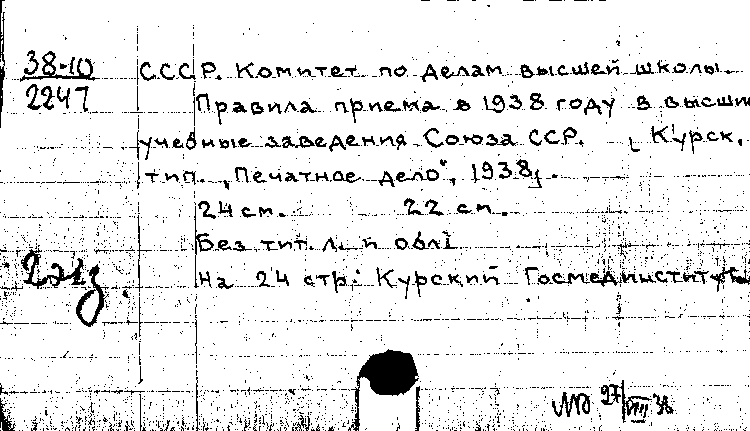 38-10
2247
СССР. Комитет по делам высшей школы.
Правила приема в 1938 году в высши
учебные заведения Союза ССР. [Курск,
тип. „Печатное дело", 1938].
24 см. 22 см.
Без тит. л. и обл.
2 экз.
На 24 стр.: Курский Госмединститут.
27/VIII 38